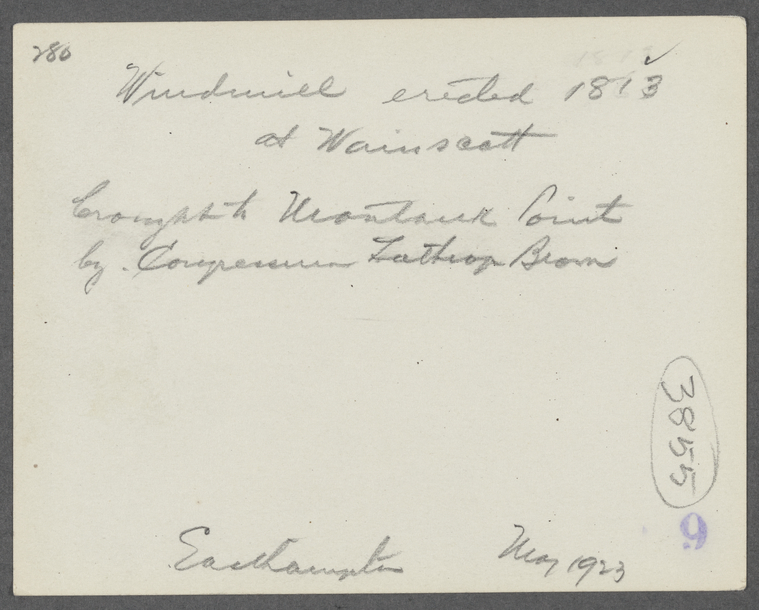 280
Windmill erected 1813
at Wainscott
brought to Montauk Point
by Congressman Lathrop Brown
3855
9
Easthampton May 1923